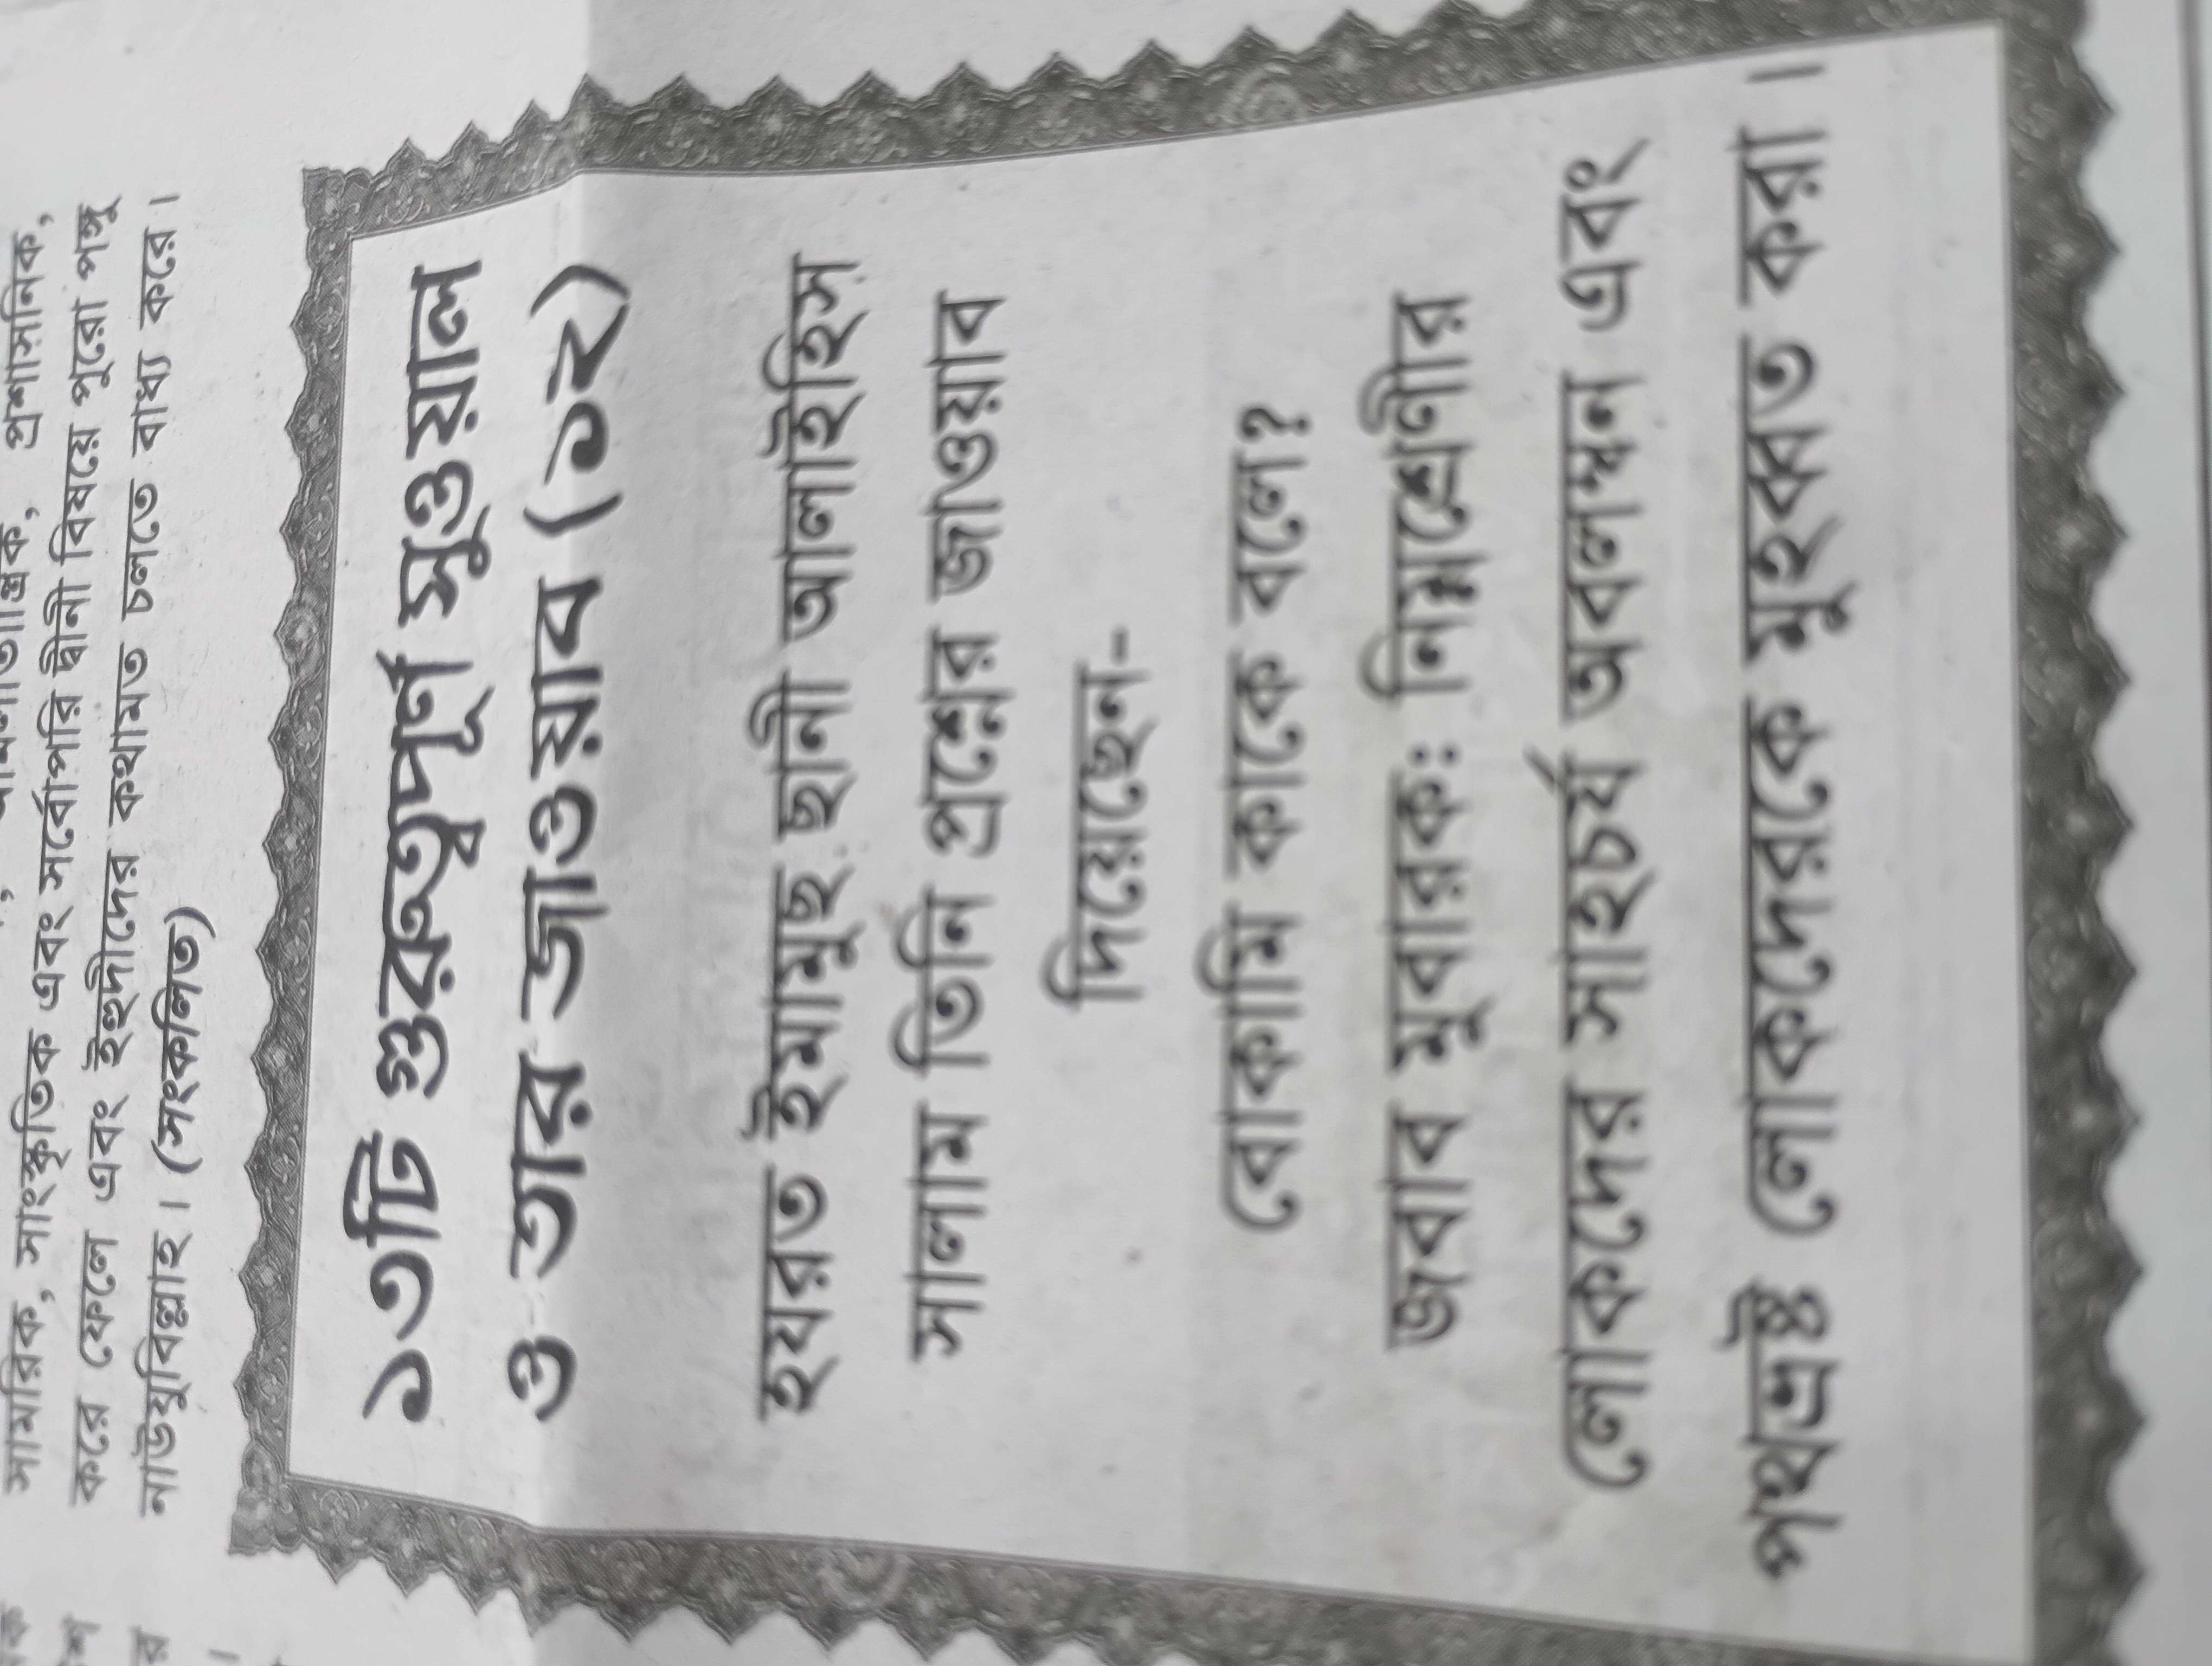 প্রশাসনিক,
সামরিক, সাংস্কৃতিক এবং সর্বোপরি দ্বীনী বিষয়ে পুরো পঙ্গু
করে ফেলে এবং ইহুদীদের কথামত চলতে বাধ্য করে।
নাউযুবিল্লাহ। (সংকলিত)
১৩টি গুরুত্বপূর্ণ সুওয়াল
ও তার জাওয়াব (১২)
হযরত ইমামুছ ছানী আলাইহিস
সালাম তিনি প্রশ্নের জাওয়াব
দিয়েছেন-
বোকামি কাকে বলে?
জবাব মুবারক: নিম্নশ্রেণীর
লোকদের সাহচর্য অবলম্বন এবং
পথভ্রষ্ট লোকদেরকে মুহব্বত করা।